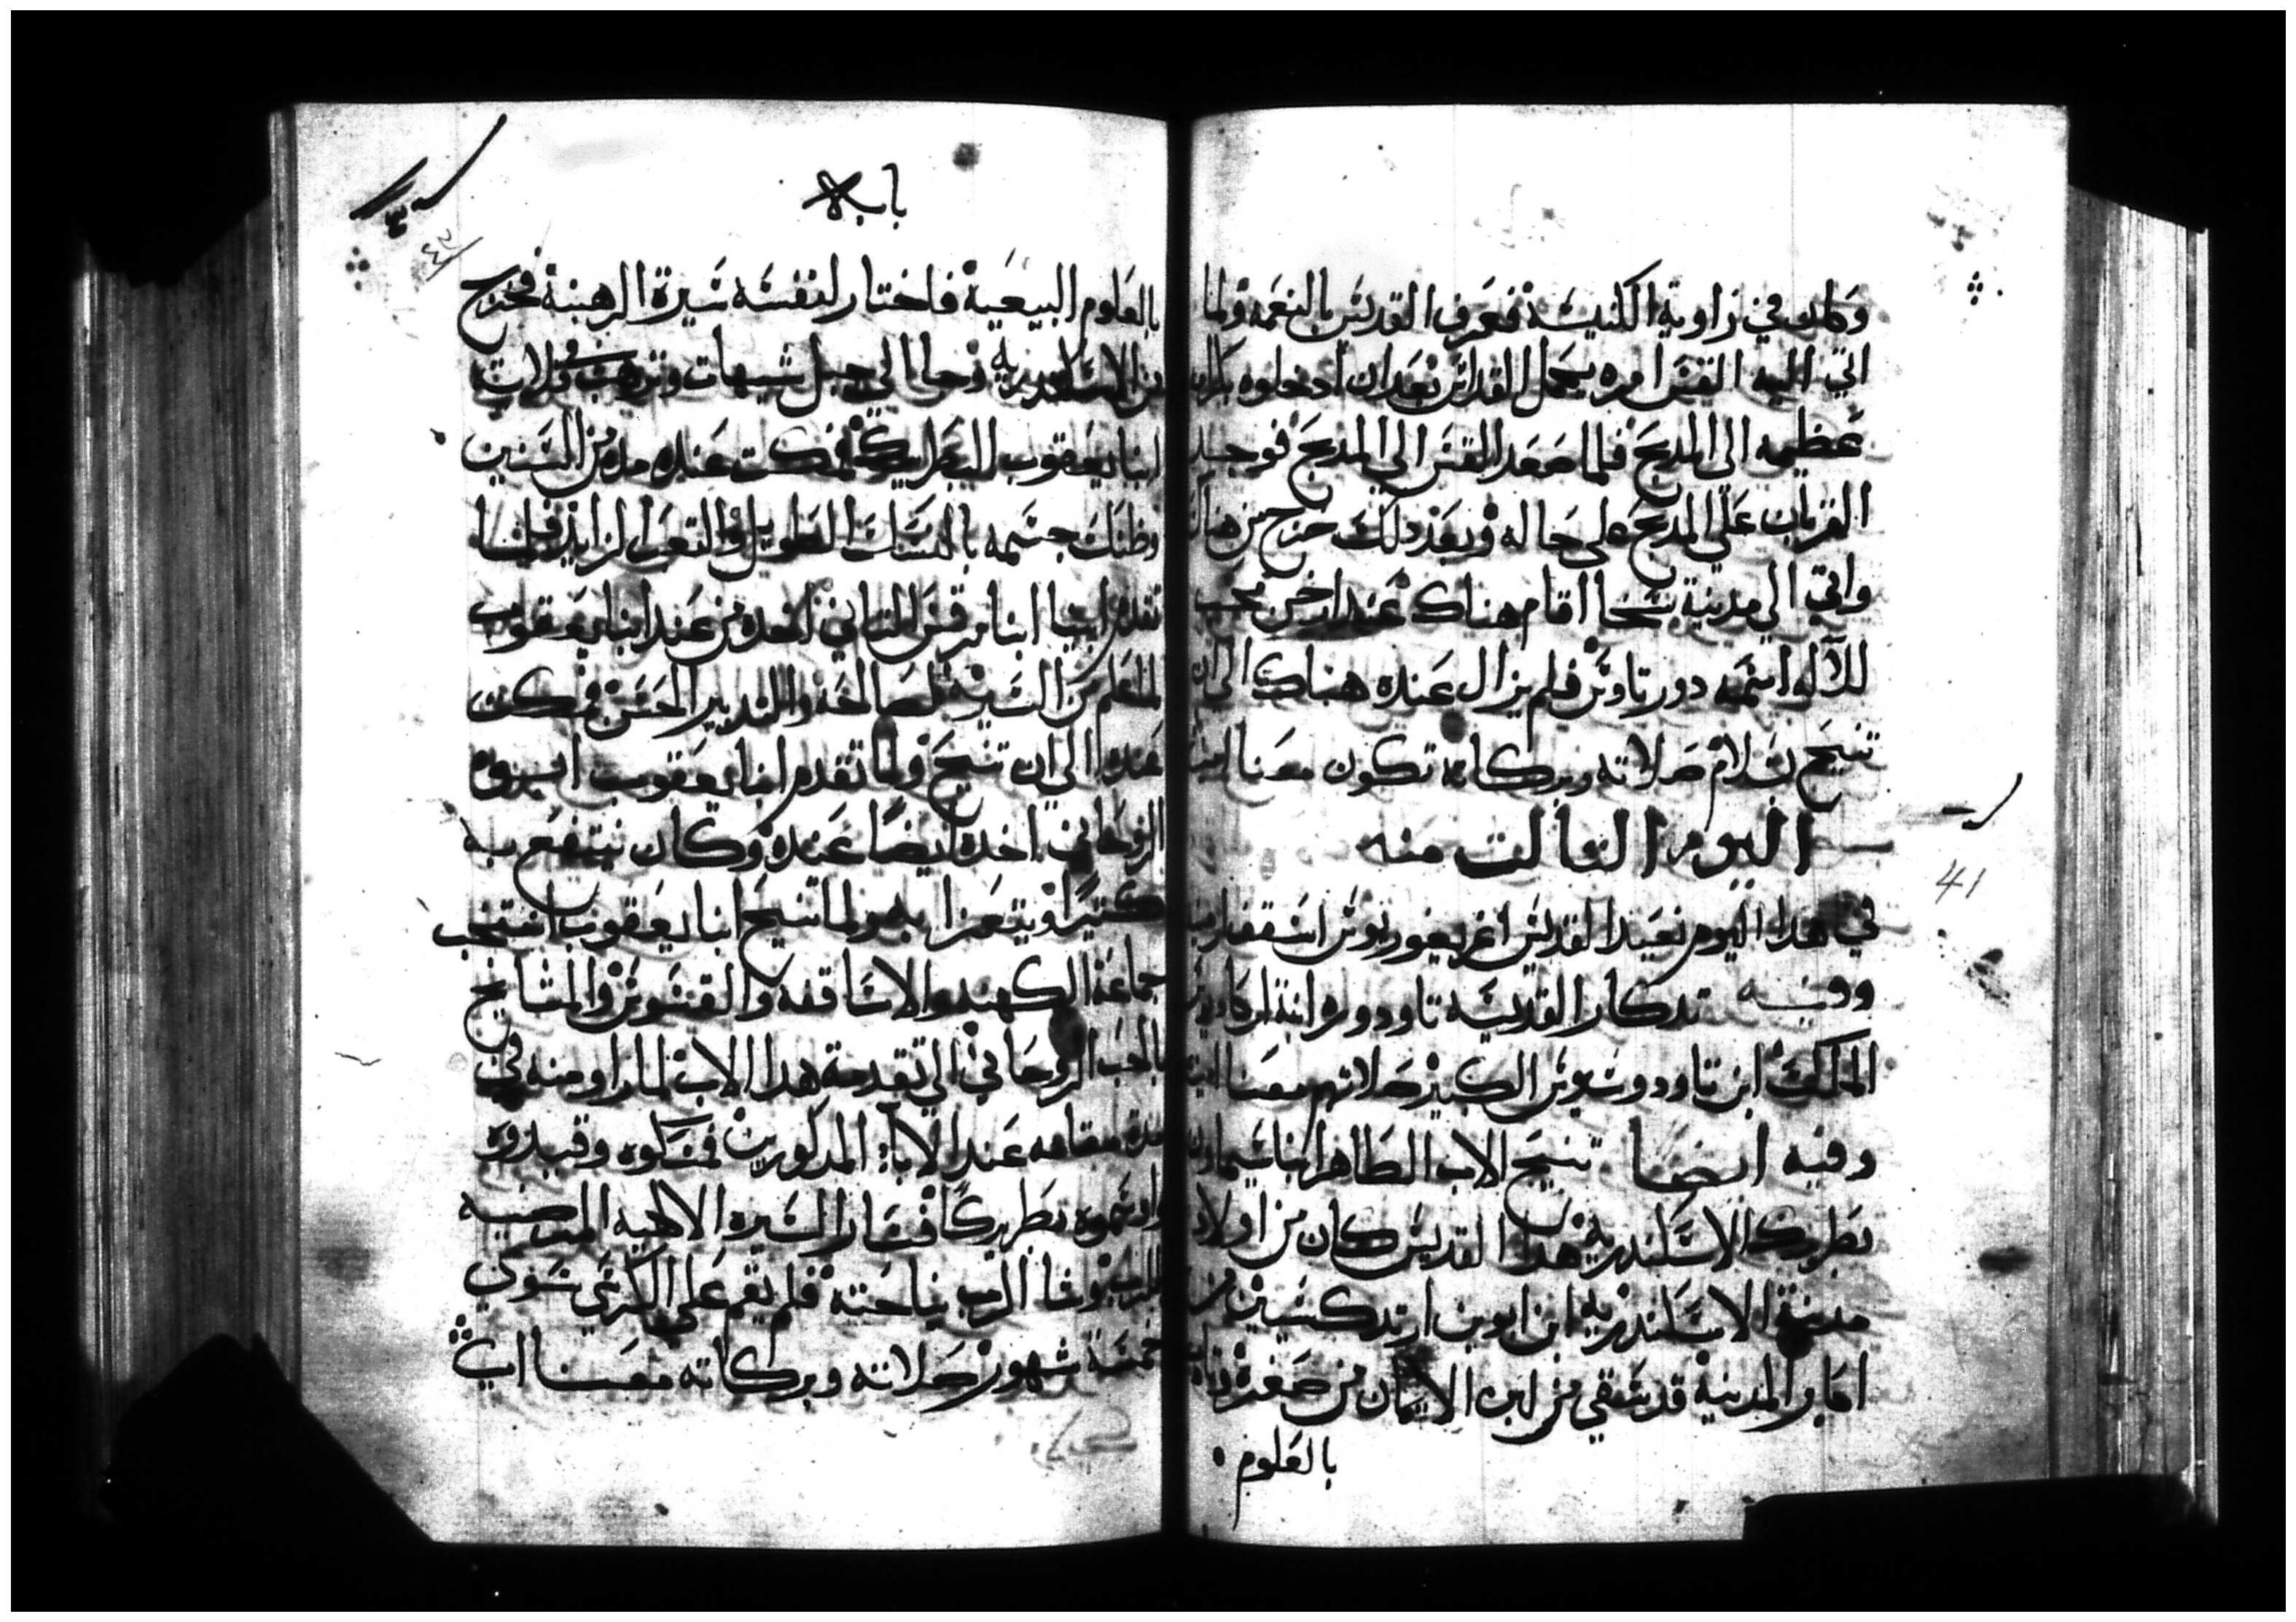 وكان في زاوية الكنيسة فعرف القديس بالنعمه ولما
اتي اليه القس امره بحمل القداس بعدان ادخلوه بكرامة
عظيمه الي المدبح فلما صعد القس الي المدبح فوجد
القربان علي المدبح علي حاله وبعد دلك خرج من هناك
واتي الي مدينة سخا اقام هناك عند ارخن محب
للاله اسمه دورتاوس فلم يزال عنده هناك الي ان
تنيح بسلام صلاته وبركاته تكون معنا امين
اليوم الثالت منه
في هدا اليوم نعيد القديس اغريغوريوس اسقف ارمنيا
وفيه تدكار القديسه تاودوره ابنة اركاديوس
الملك ابن تاودوسيوس الكبير صلاتهم معنا امين
وفيه ايضا تنيح الاب الطاهر انبا سيماون
بطريرك الاسكندريه هدا القديس كان من اولاد
مدينة الاسكندريه ابن ابوين ارتدكسيين من
اكابر المدينة قد سقي من لبن الايمان من صغره وتادب
بالعلوم
41
بابه
٤٢
بالعلوم البيعية فاختار لنفسه سيرة الرهبنة فخرج
من الاسكندريه وجا الي جبل شيهات وترهب في قلاية
انبا يعقوب البطريرك فمكت عنده مده من السنين
وظنك جسمه بالنسك الطويل والتعب الزايد فلما
تقدم ابينا انبا مرقس التاني اخده من عند انبا يعقوب
لما علم من السيرة الصالحة والتدبير الحسن فمكت
عنده الي ان تنيح ولما تقدم انبا يعقوب ابوه
الروحاني اخده ايضا عنده وكان ينتفع به
كتيرا ويتعزا به ولما تنيح انبا يعقوب انتخب
جماعة الكهنه والاساقفه والقسوس والمشايخ
بالحب الروحاني الي تقدمة هدا الاب لما راو منه في
مدة مقامه عند الابا المدكورين فمسكوه وقيدوه
وارسموه بطريركا فسار السيره الالهيه المرضيه
للرب وشا الرب نياحته فلم يقم علي الكرسي سوي
خمسة شهور صلاته وبركاته معنا امين